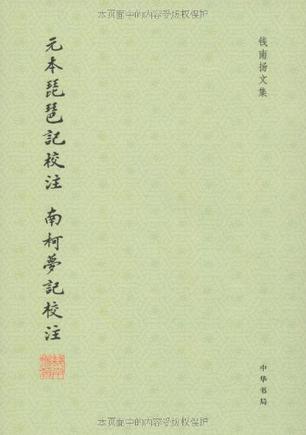 本页面中的内容受版权保护
钱南扬文集
元本琵琶記校注 南柯夢記校注
中华书局
本页面中的内容受版权保护